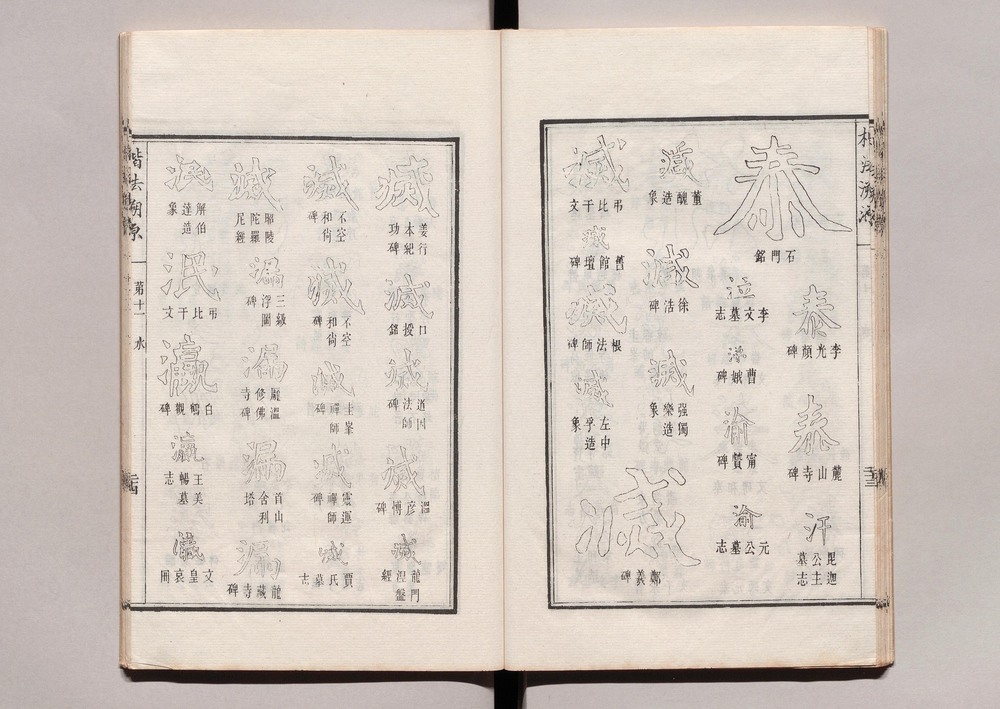 楷法溯源
泰
石門銘
泰
李光顏碑
泰
麓山寺碑
汗
毘迦
公主
墓志
泣
李文墓志
曹娥碑
渝
甯贊碑
渝
元公墓志
滅
董醜造象
滅
徐浩碑
滅
强獨
樂造
象
滅
鄭義碑
滅
弔比干文
滅
舊館壇碑
滅
根法師碑
滅
左中
孚造
象
滅
姜行
本紀
功碑
滅
口授銘
滅
道因
法師
碑
滅
溫彥博碑
滅
龍門
涅盤
經
滅
不空
和尙
碑
滅
不空
和尙
碑
滅
圭峯
禪師
碑
滅
靈運
禪師
碑
滅
賈氏墓志
滅
陀羅
尼經
漏
三級
浮圖
碑
漏
龎溫
修佛
寺碑
漏
首山
舍利
塔
漏
龍藏寺碑
泯
解伯
達造
象
泯
弔比干文
瀛
白鶴觀碑
瀛
王美
暢墓
志
瀛
文皇哀冊
楷法溯原
第十一 水